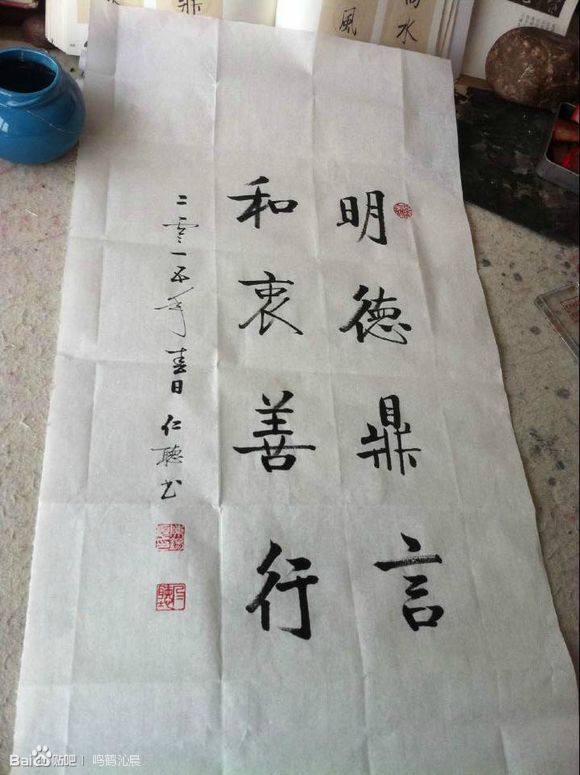 明德鼎言
和衷善行
二零一五年春日仁聽书
水
鼎
風
Bai贴吧 | 鸣鹤沁晨